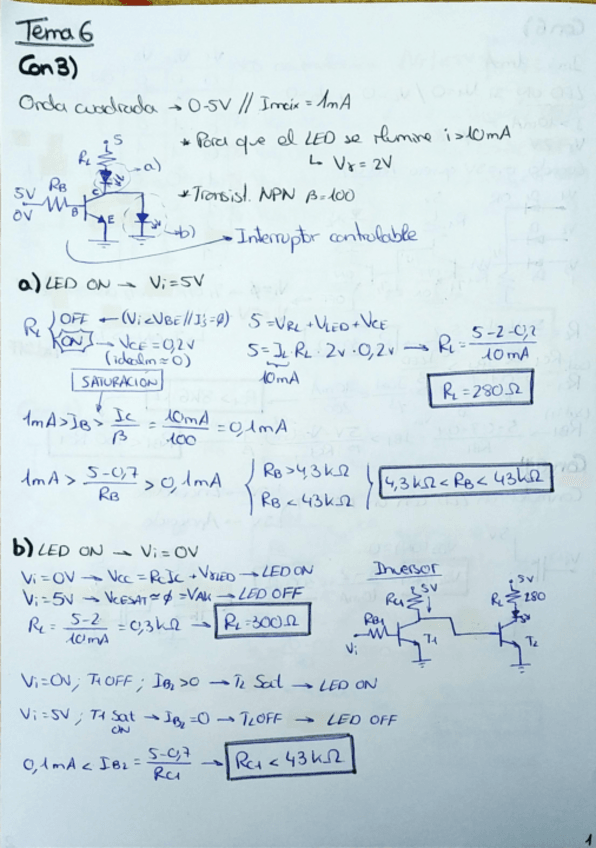 Tema 6
Con 3)
Onda cuadrada → 0-5V // Imáix = 1mA
* Para que el LED se ilumine i>10mA
↳ Vγ = 2V
* Transist. NPN β=100
5
RL
a)
5V
0V
RB
B
C
E
b)
Interruptor controlable
a) LED ON → Vi=5V
RL { OFF ← (Vi<VBE // Ii=ø)
ON → VCE = 0,2V
(idealm ≈ 0)
SATURACIÓN
5 = VRL + VLED + VCE
5 = IL·RL · 2V · 0,2V → RL = 5-2-0,2 / 10mA
10mA
RL = 280Ω
1mA > IB > IC/β = 10mA/100 = 0,1mA
1mA > 5-0,7/RB > 0,1mA { RB > 4,3kΩ
RB < 43kΩ }
4,3kΩ < RB < 43kΩ
b) LED ON → Vi = 0V
Vi = 0V → VCC = RC IC + VγLED → LED ON
Vi = 5V → VCESAT ≈ ø = VAK → LED OFF
RL = 5-2/10mA = 0,3kΩ → RL = 300Ω
Inversor
5V
RC1
RB1
Vi
T1
5V
RL 280
T2
Vi=0V; T1 OFF; IB2>0 → T2 Sat → LED ON
Vi=5V; T1 Sat → IB2=0 → T2 OFF → LED OFF
ON
0,1mA < IB2 = 5-0,7/RC1 → RC1 < 43kΩ
1